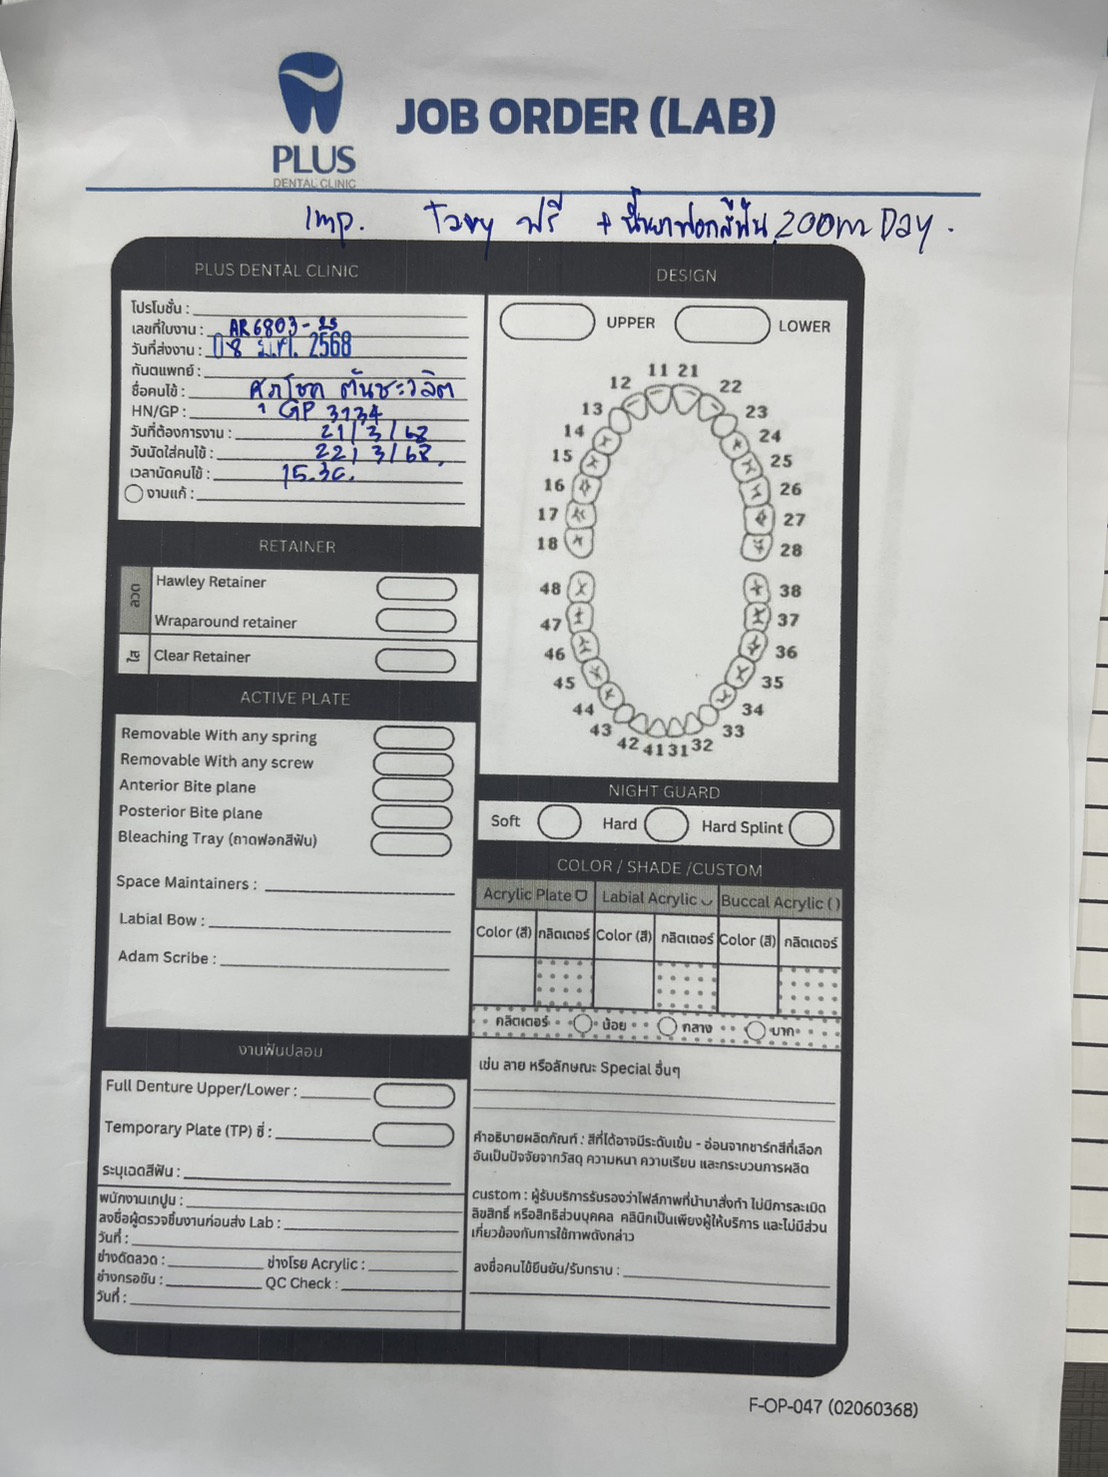 PLUS
DENTAL CLINIC
JOB ORDER (LAB)
Imp. ฟรี + น้ำยาฟอกสีฟัน Day.
PLUS DENTAL CLINIC
โปรโมชั่น :
เลขที่ใบงาน : AR6803-25
วันที่ส่งงาน : 08 มี.ค. 2568
ทันตแพทย์ :
ชื่อคนไข้ : ศุภโชค ตันชะวลิต
HN/GP : GP 3134
วันที่ต้องการงาน : 21/3/68
วันนัดใส่คนไข้ : 22/3/68
เวลานัดคนไข้ : 15.30.
งานแก้ :
RETAINER
ลวด
Hawley Retainer
Wraparound retainer
ใส
Clear Retainer
ACTIVE PLATE
Removable With any spring
Removable With any screw
Anterior Bite plane
Posterior Bite plane
Bleaching Tray (ถาดฟอกสีฟัน)
Space Maintainers :
Labial Bow :
Adam Scribe :
งานฟันปลอม
Full Denture Upper/Lower :
Temporary Plate (TP) ซี่ :
ระบุเฉดสีฟัน :
พนักงานเทปูน :
ลงชื่อผู้ตรวจชิ้นงานก่อนส่ง Lab :
วันที่ :
ช่างดัดลวด : ช่างโรย Acrylic :
ช่างกรอขัน : QC Check :
วันที่ :
DESIGN
UPPER LOWER
11 21
12 22
13 23
14 24
15 25
16 26
17 27
18 28
48 38
47 37
46 36
45 35
44 34
43 33
42 41 31 32
NIGHT GUARD
Soft Hard Hard Splint
COLOR / SHADE /CUSTOM
Acrylic Plate Labial Acrylic Buccal Acrylic ( )
Color (สี) กลิตเตอร์ Color (สี) กลิตเตอร์ Color (สี) กลิตเตอร์
กลิตเตอร์ น้อย กลาง มาก
เช่น ลาย หรือลักษณะ Special อื่นๆ
คำอธิบายผลิตภัณฑ์ : สีที่ได้อาจมีระดับเข้ม - อ่อนจากชาร์ทสีที่เลือก
อันเป็นปัจจัยจากวัสดุ ความหนา ความเรียบ และกระบวนการผลิต
custom : ผู้รับบริการรับรองว่าไฟล์ภาพที่นำมาสั่งทำ ไม่มีการละเมิด
ลิขสิทธิ์ หรือสิทธิส่วนบุคคล คลินิกเป็นเพียงผู้ให้บริการ และไม่มีส่วน
เกี่ยวข้องกับการใช้ภาพดังกล่าว
ลงชื่อคนไข้ยืนยัน/รับทราบ :
F-OP-047 (02060368)